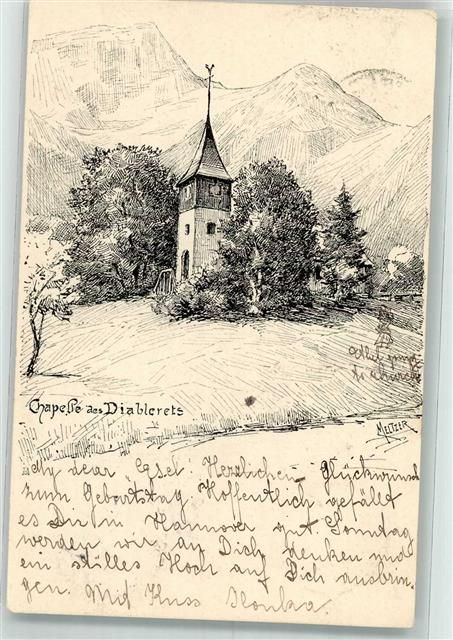 Chapelle des Diablerets
MELTZER
to church
My dear Egsel: Herzlichen Glückwunsch
zum Geburtstag. Hoffentlich gefällt
es Dir in Hannover gut. Sonntag
werden wir an Dich denken und
ein stilles Hoch auf Dich ausbrin-
gen. Mit Kuss Ilonka.